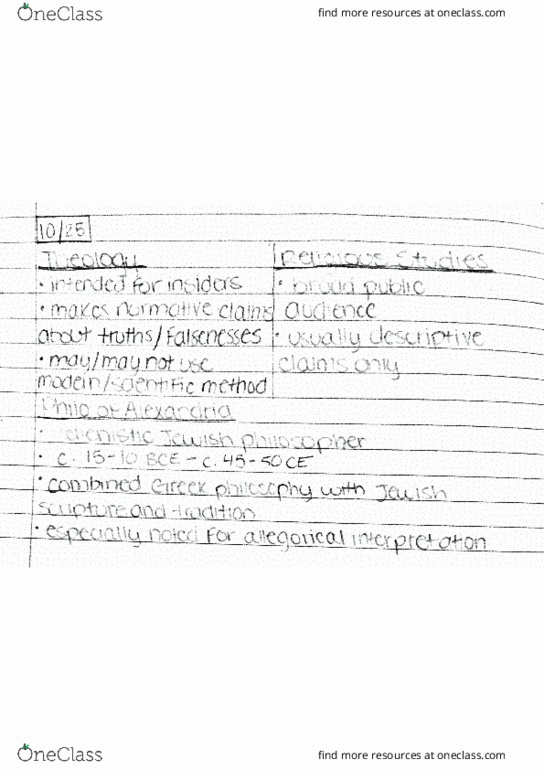 OneClass
find more resources at oneclass.com
10/25
Theology
Religious Studies
• intended for insiders
• broad public
• makes normative claims
audience
about truths/Falsenesses
• usually descriptive
• may/may not use
claims only
modern/scientific method
Philo of Alexandria
Jewish philosopher
• c. 15-10 BCE - c. 45-50 CE
• combined Greek philosophy with Jewish
scripture and tradition
• especially noted for allegorical interpretation
OneClass
find more resources at oneclass.com